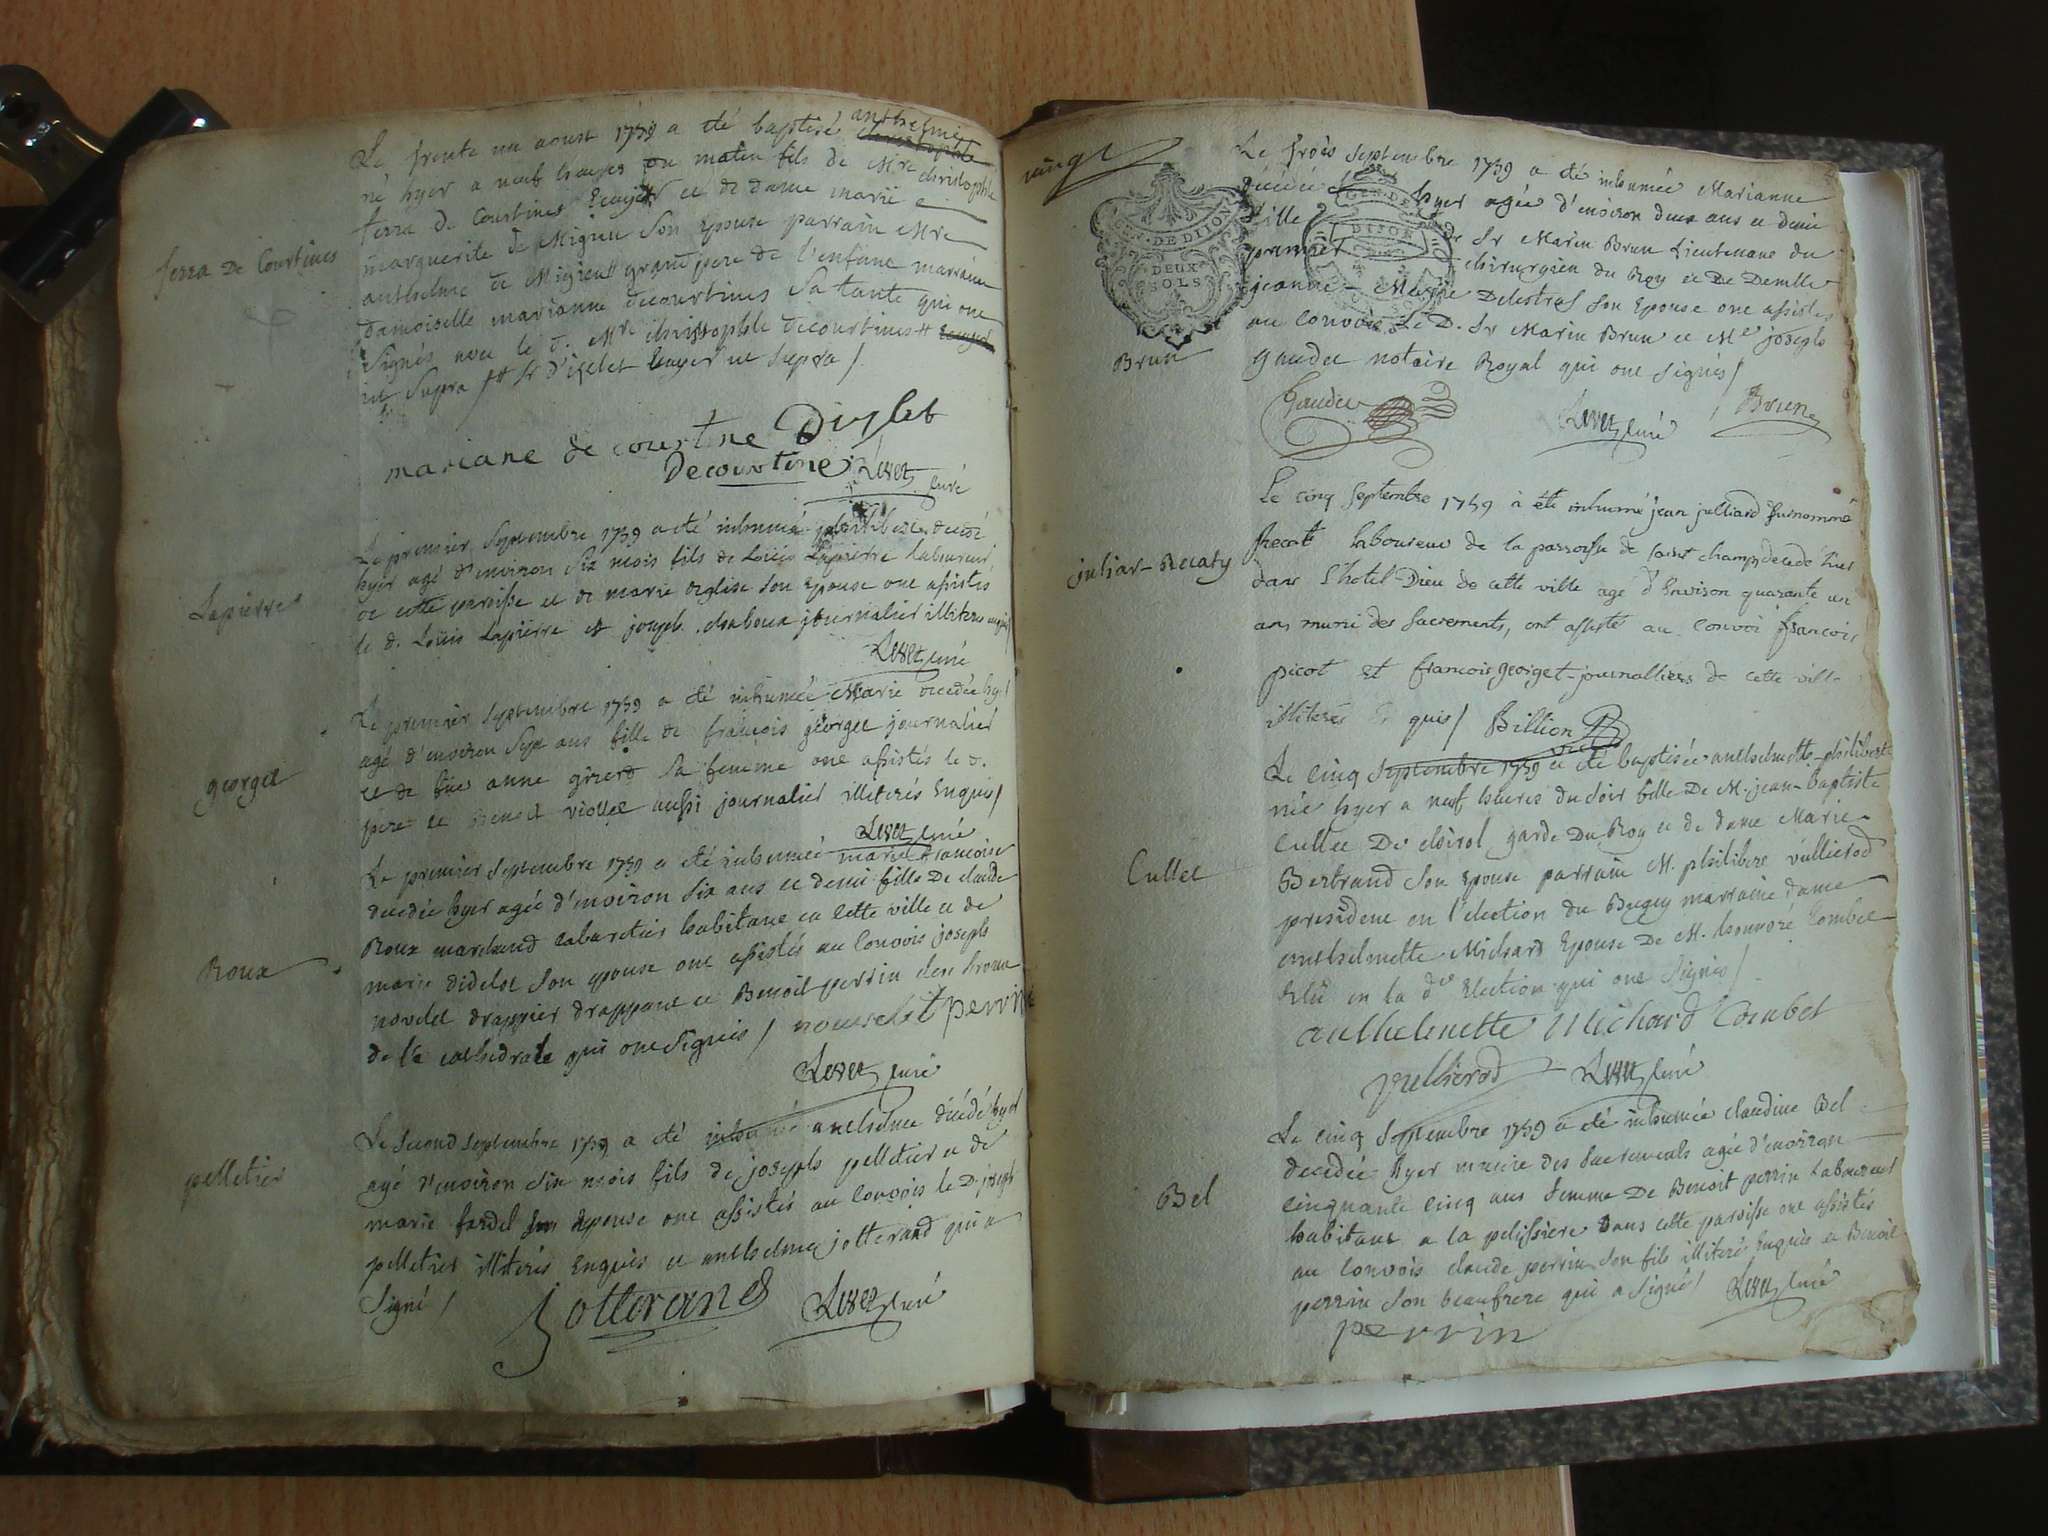 ferra De Courtines
Le trente un aoust 1759 a été baptisé anthelme christophle
né hyer a neuf heures du matin fils de Mre christophle
ferra de Courtines Ecuyer et de dame marie
marguerite de Migieu son Epouse parrain Mre
anthelme de Migieu grand pere de l'enfant marraine
damoiselle marianne decourtines sa tante qui ont
signés avec le d. Mre christophle decourtines # Ecuyer
ut supra / # Sr d'iselet Ecuyer ut supra /
mariane de courtine Dizlet
Decourtine Levet curé
Lapierre
Le premier septembre 1759 a été inhumé philibert decedé
hyer agé d'environ six mois fils de Loüis Lapierre Laboureur
de cette paroisse et de marie deglise son Epouse ont assistés
le d. Loüis Lapierre et joseph chaboux journalier illiterés enquis /
Levet curé
georget
Le premier septembre 1759 a été inhumée Marie decedée hyer
agé d'environ sept ans fille de françois georget journalier
et de füe anne girerd sa femme ont assistés le d.
pere et Benoit viollet aussi journalier illiterés Enquis /
Levet curé
Roux
Le premier septembre 1759 a été inhumée marie francoise
decedée hyer agée d'environ six ans et demi fille De claude
Roux marchand cabaretier habitant en cette ville et de
marie didelot son epouse ont assistés au convois joseph
novelet drappier drappant et Benoit perrin clerc
de la cathedrale qui ont signés / nouvelet perrin
Levet curé
pelletier
Le second septembre 1759 a été inhumé anthelme décédé hyer
agé d'environ six mois fils de joseph pelletier et de
marie fardel son epouse ont assistés au convois le D. joseph
pelletier illiterés Enquis et anthelme jotterand qui a
signé /
jotterand Levet curé
vingt
GEN. DE DIJON
DEUX
SOLS
DIJON
Brun
Le trois septembre 1759 a été inhumée Marianne
décédée hyer agée d'environ deux ans et demi
fille de Sr Marin Brun Lieutenant du
premier chirurgien du Roy et De Demlle
jeanne-Marie Delestraz son Epouse ont assistés
au convois Le D. Sr Marin Brun et Me joseph
gaudet notaire Royal qui ont signés /
Gaudet Levet curé Brun
juliar-Recaty
Le cinq septembre 1759 a eté inhumé jean julliard surnommé
Recati laboureur de la parroisse de saint champ decedé hier
dans l'hotel-Dieu de cette ville agé d'environ quarante un
ans muni des sacrements, ont assisté au convoi francois
picot et francois georget journalliers de cette ville
illiterés Enquis / Billion vic
Cullet
Le cinq septembre 1759 a été baptisée anthelmette-philiberte
née hyer a neuf heures du soir fille De M. jean-Baptiste
Cullet De chirol garde Du Roy et de dame Marie
Bertrand son epouse parrain M. philibert vullierod
president en l'election du Bugey marraine dame
anthelmette Michard Epouse De M. honnoré Combet
Elu en la de Election qui ont signés /
anthelmette Michard Combet
Vullierod Levet curé
Bel
Le cinq septembre 1759 a été inhumée claudine Bel
decedée hyer munie des sacrements agée d'environ
cinquante cinq ans femme De Benoit perrin Laboureur
habitant a la pelissiere dans cette paroisse ont assistés
au convois claude perrin son fils illiteré Enquis et Benoit
perrin son beaufrere qui a signé / Levet curé
perrin